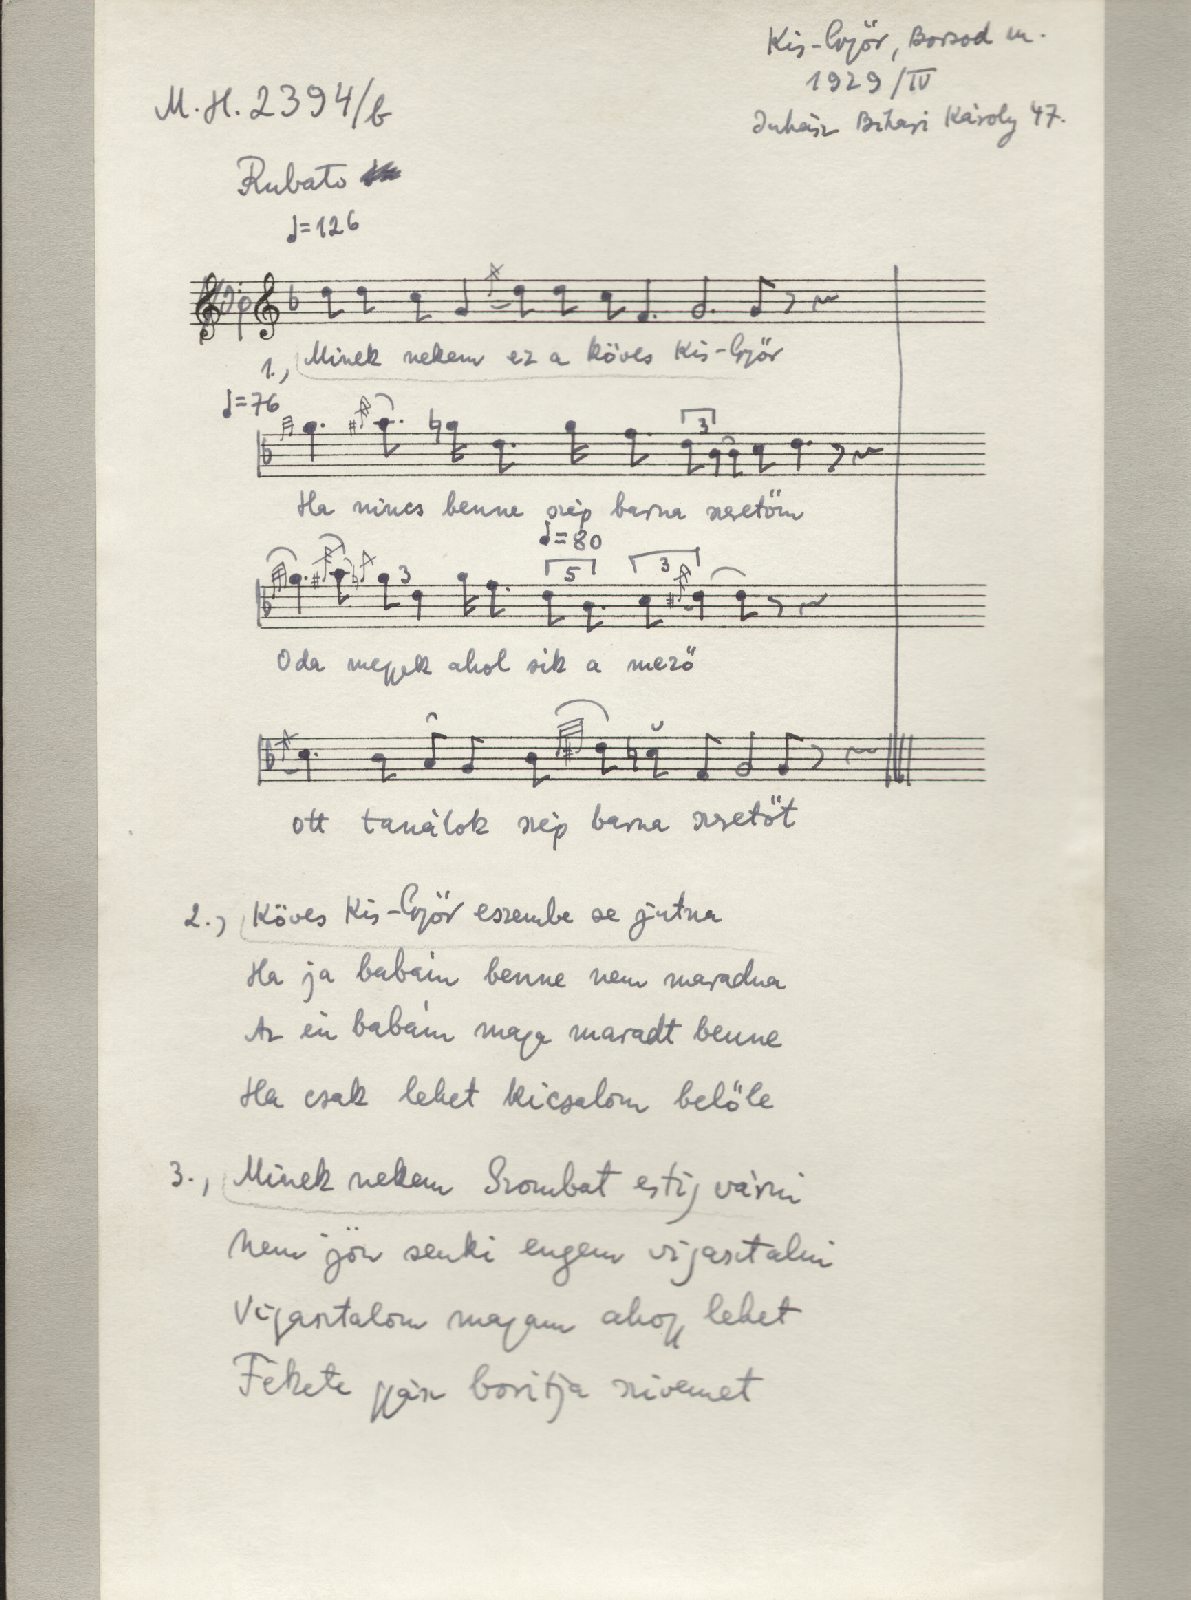 Kis-Győr, Borsod m.
1929/IV
M.H. 2394/b
Juhász Bihari Károly 47.
Rubato
♩=126
1., Minek nekem ez a köves Kis-Győr
♩=76
3
Ha nincs benne szép barna szeretőm
♩=80
3 5 3
Oda megyek ahol sik a mező
ott tanálok szép barna szeretőt
2., Köves Kis-Győr eszembe se jutna
Ha ja babám benne nem maradna
Az én babám maga maradt benne
Ha csak lehet kicsalom belőle
3., Minek nekem Szombat estij várni
Nem jön senki engem vigasztalni
Vigasztalom magam ahogy lehet
Fekete gyász boritja szivemet